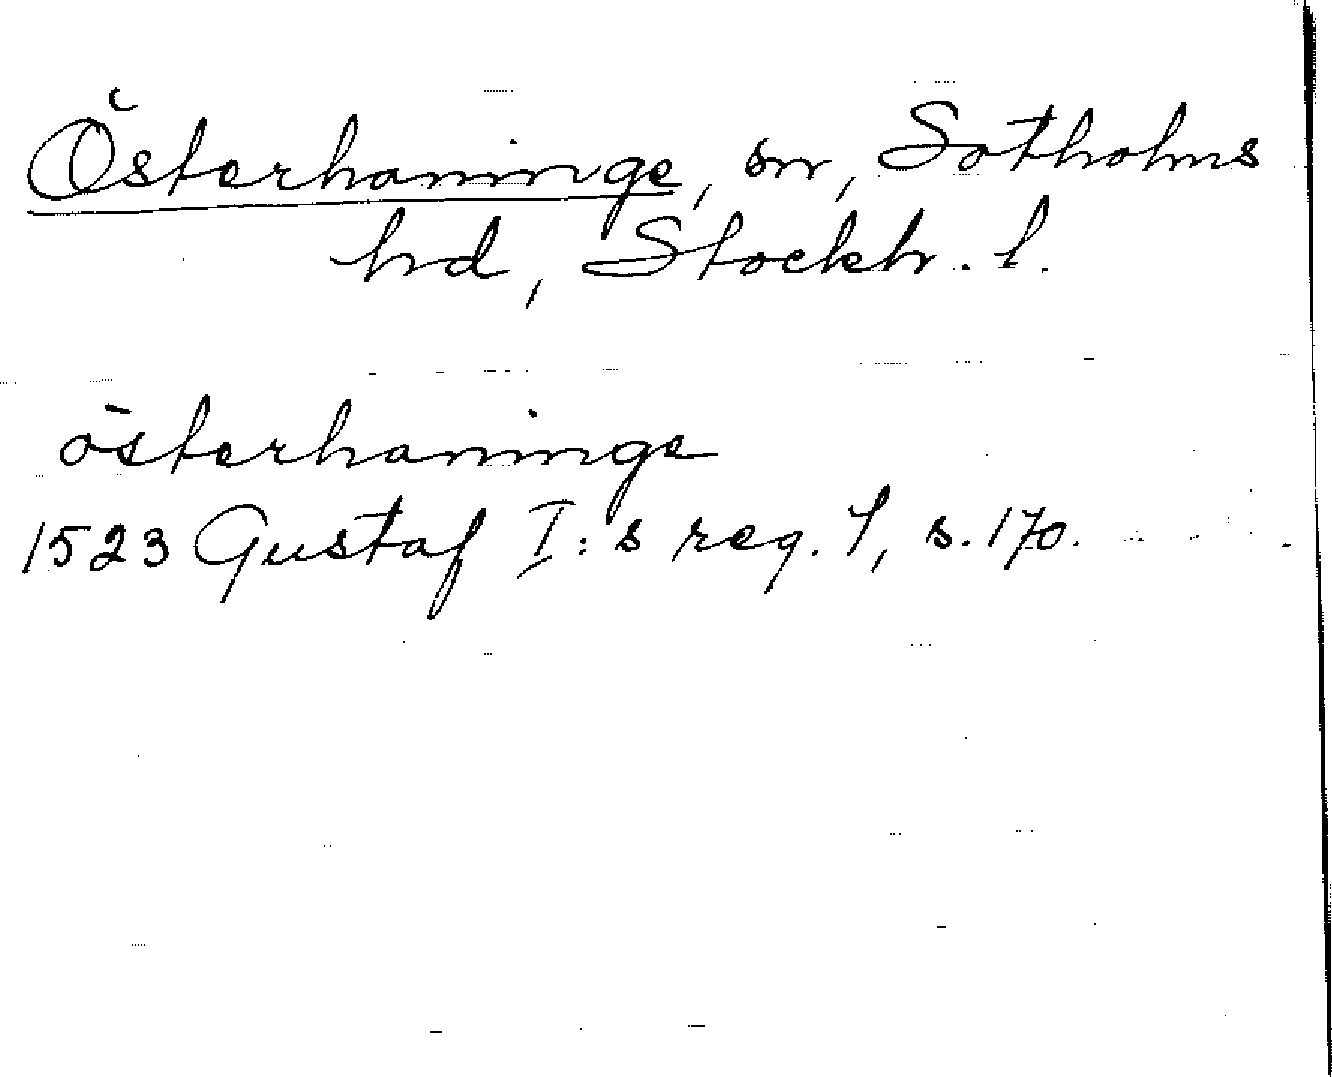 Österhaninge, sn, Sotholms
hd, Stockh. l.
österhaninge
1523 Gustaf I:s reg. 1, s. 170.